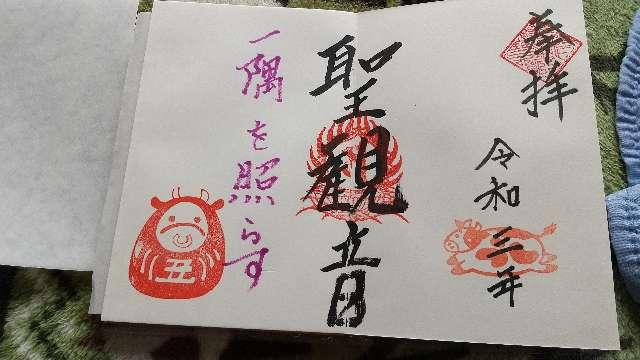 奉拝
令和三年
聖観音
一隅を照らす
丑